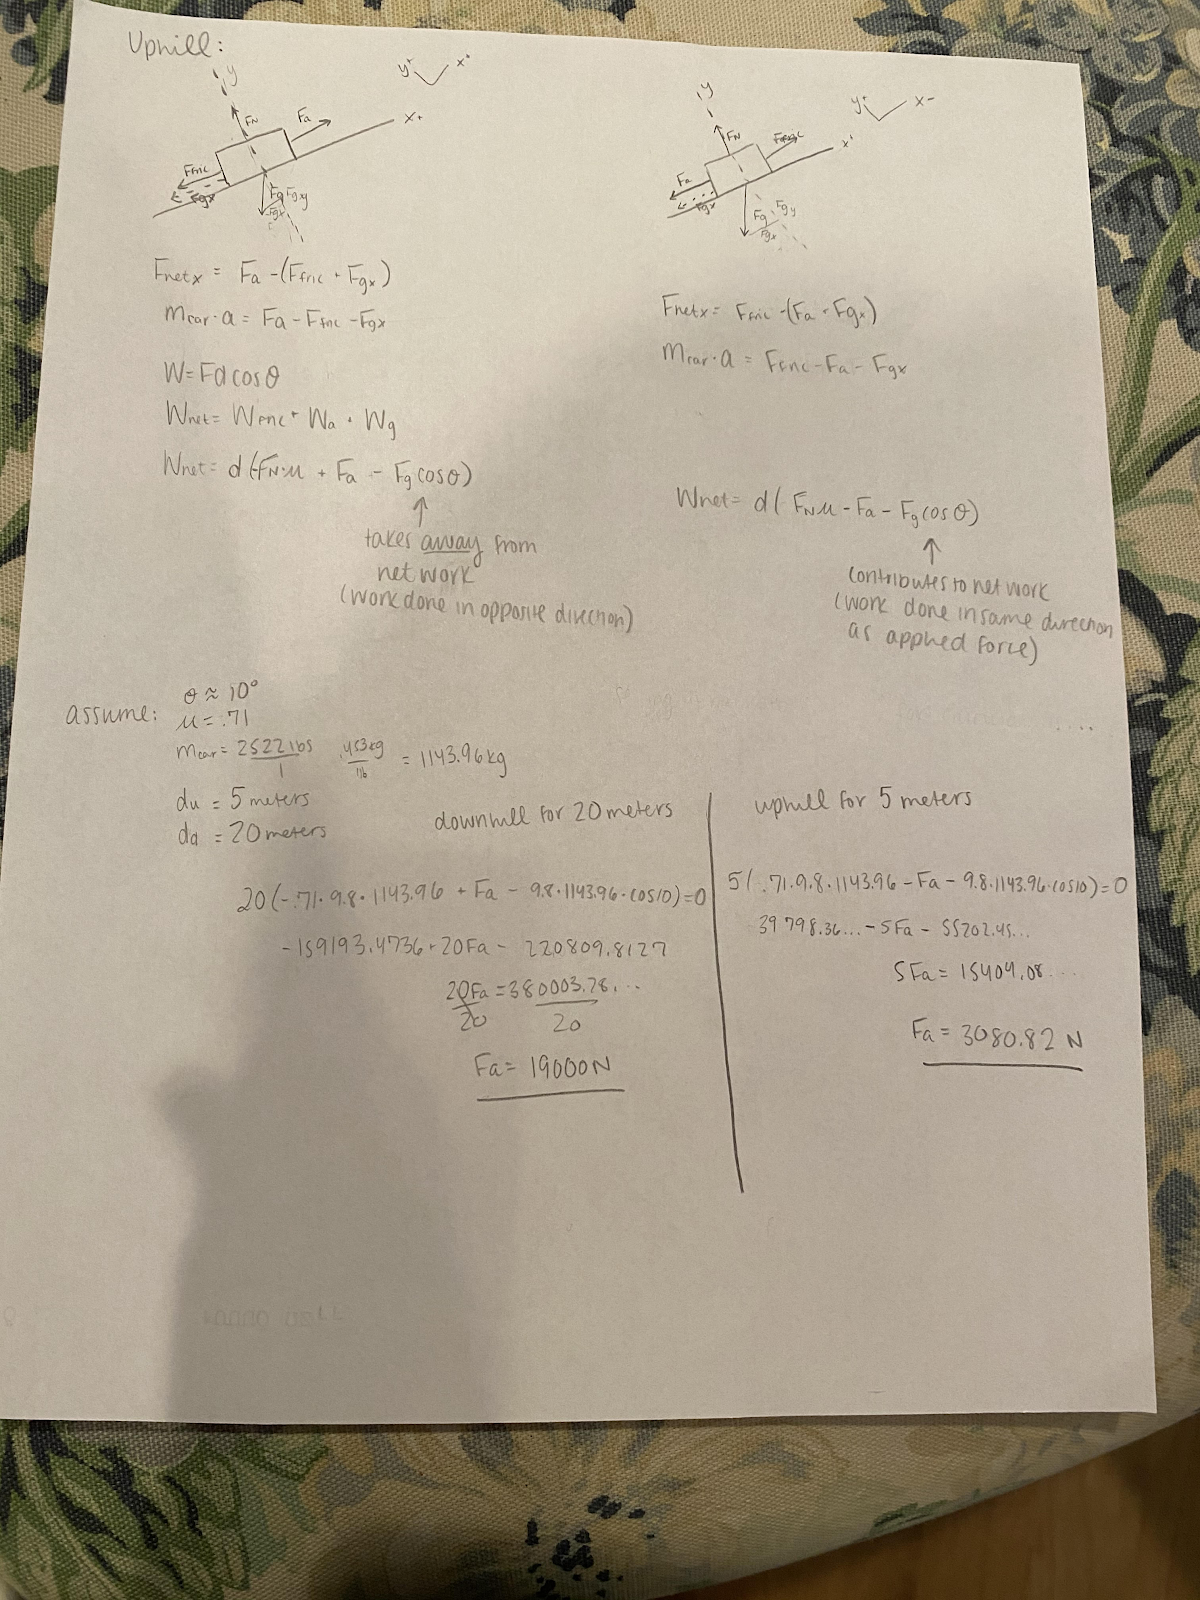 Uphill:
y
FN
Fa
x+
y+ x+
Ffric
Fgx
Fg Fgy
Fgx
y
FN
Ffric
x+
y+ x-
Fa
Fgx
Fg Fgy
Fgx
Fnetx = Fa -(Ffric + Fgx)
mcar·a = Fa - Ffric - Fgx
W=Fdcosθ
Wnet= Wfric + Wa + Wg
Wnet= d(-FN·μ + Fa - Fg cosθ)
↑
takes away from
net work
(work done in opposite direction)
Fnetx= Ffric -(Fa + Fgx)
mcar·a = Ffric-Fa- Fgx
Wnet= d( FNμ - Fa - Fg cosθ)
↑
contributes to net work
(work done in same direction
as applied force)
assume: θ ≈ 10°
μ = .71
mcar= 2522 lbs/1 .453kg/lb = 1143.96kg
du = 5 meters
dd = 20 meters
downhill for 20 meters
20(-.71·9.8·1143.96 + Fa - 9.8·1143.96·cos10)=0
-159193.4736+20Fa- 220809.8127
20Fa =380003.28...
20 20
Fa= 19000N
uphill for 5 meters
5(.71·9.8·1143.96 -Fa- 9.8·1143.96·cos10)=0
39798.36...-5Fa- 55202.45...
5Fa= 15404.08...
Fa= 3080.82 N